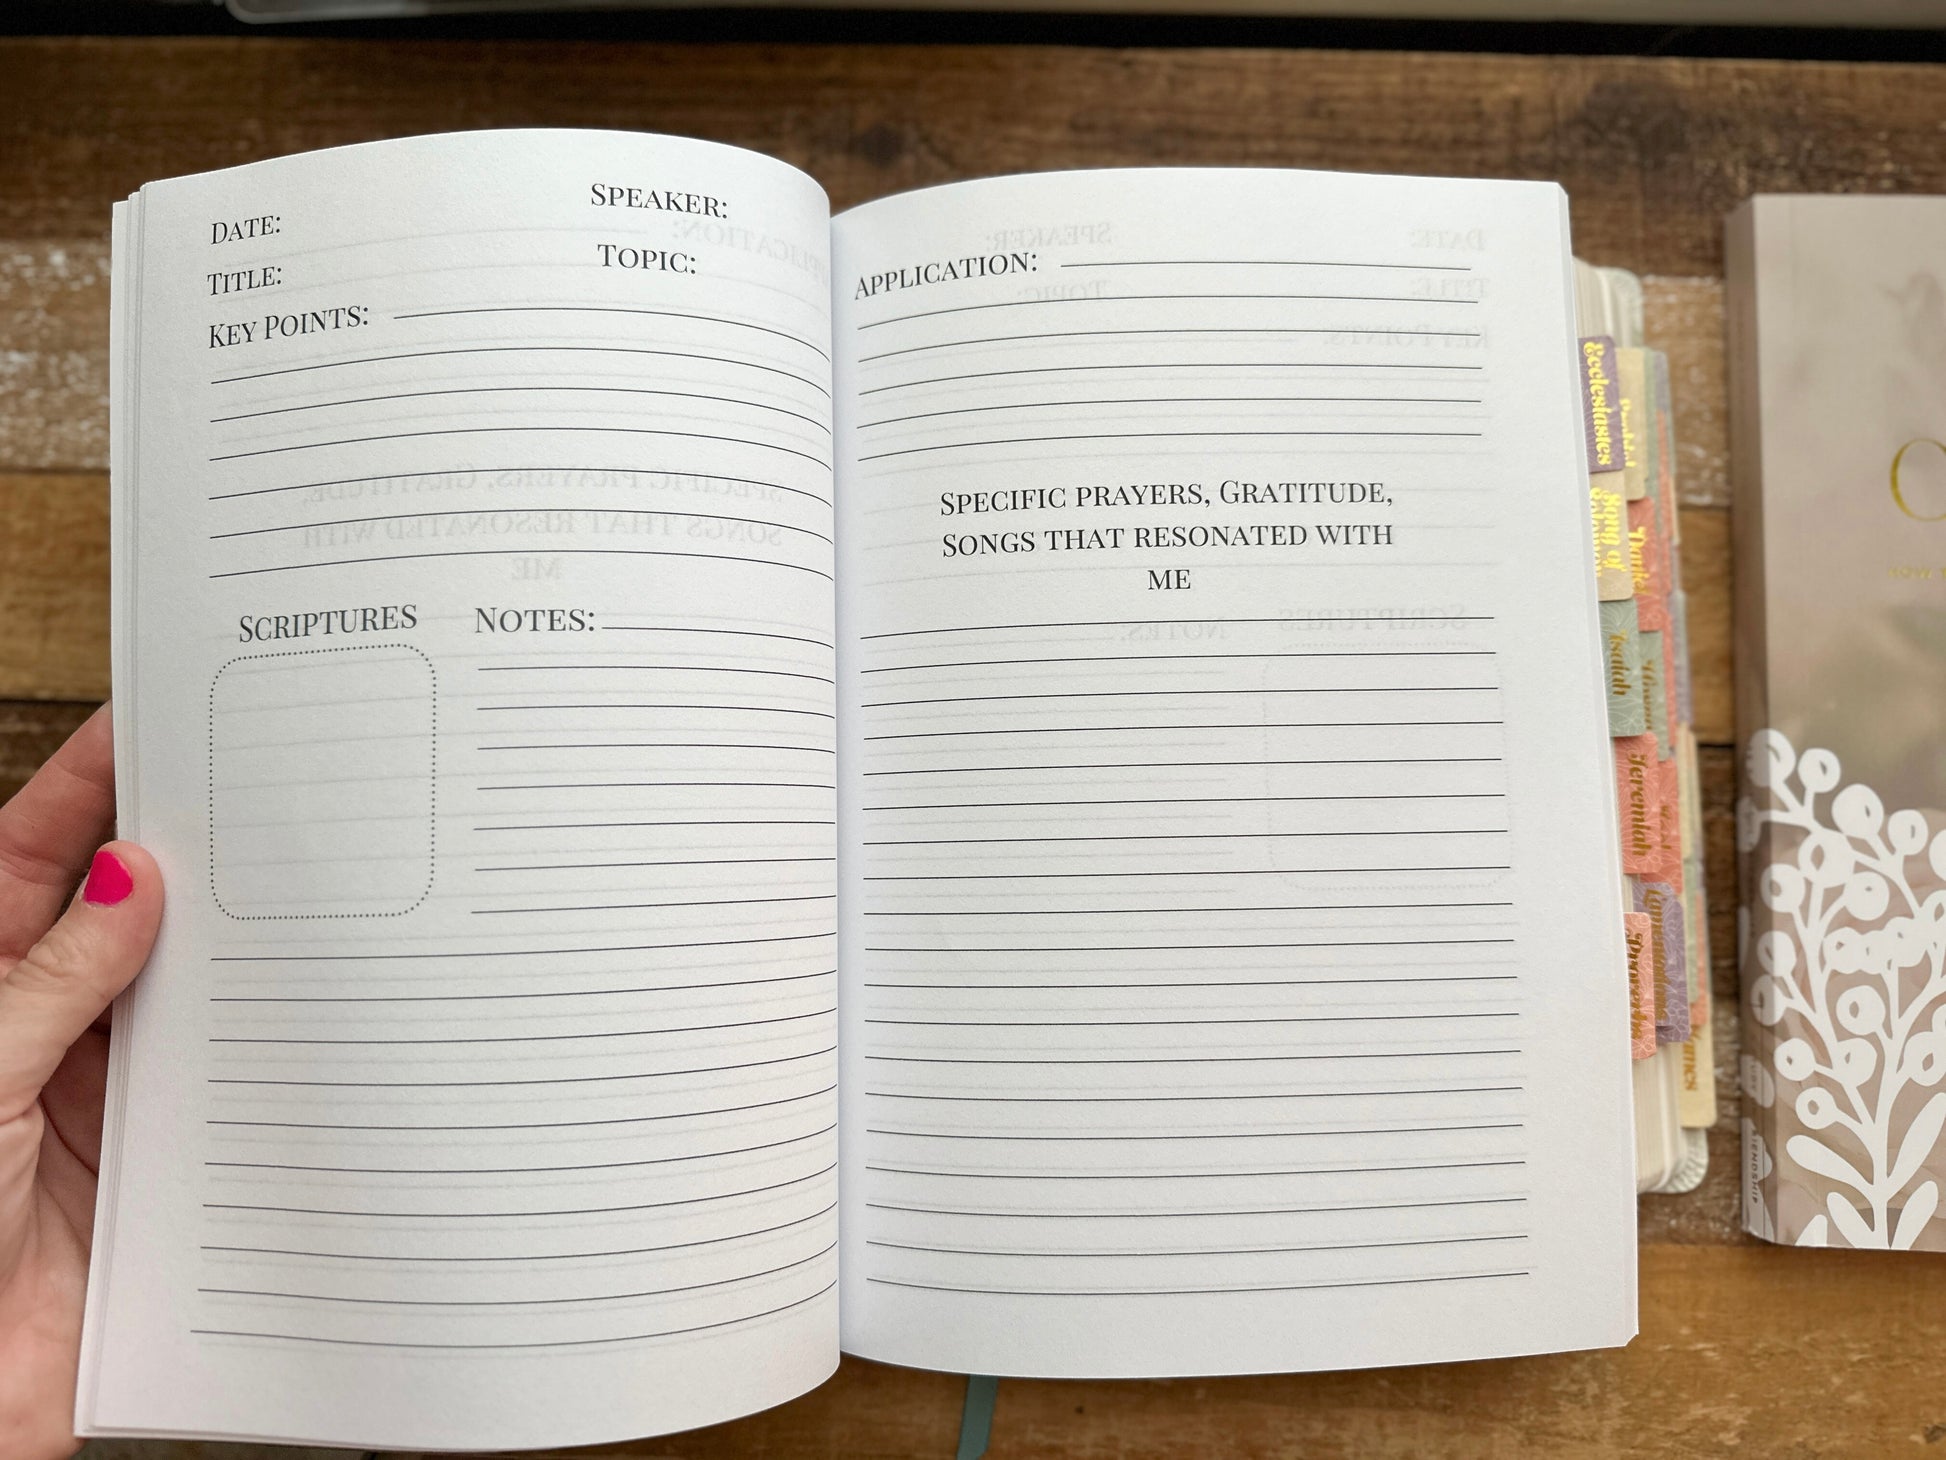 DATE:
SPEAKER:
TITLE:
TOPIC:
KEY POINTS:
SCRIPTURES
NOTES:
APPLICATION:
SPECIFIC PRAYERS, GRATITUDE,
SONGS THAT RESONATED WITH
ME
Ecclesiastes
Song of
Isaiah
Jeremiah
Lamentations
Proverbs